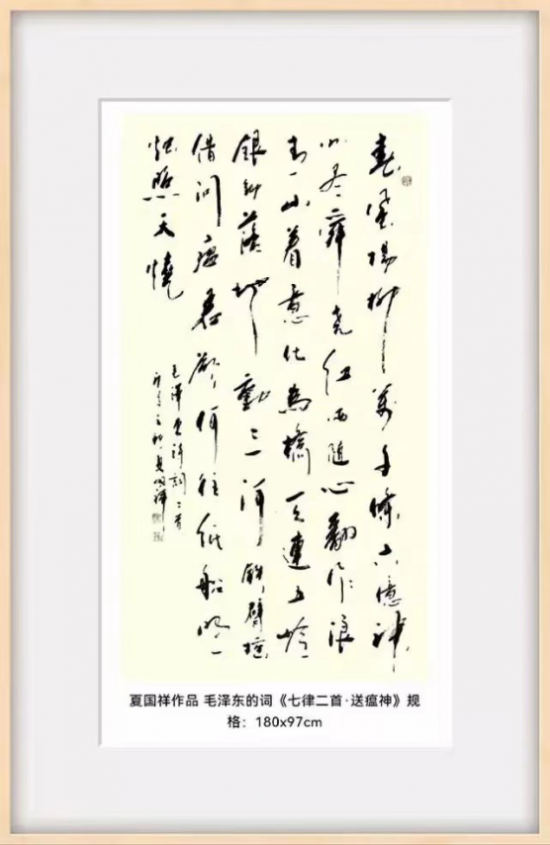 春風楊柳萬千條六億神
州尽舜尧红雨随心翻作浪
青山着意化為橋天連五岭
银锄落地動三河鉄臂摇
借问瘟君欲何往纸船明
烛照天燒
毛泽东诗词二首
夏国祥
夏国祥作品 毛泽东的词《七律二首·送瘟神》规
格：180x97cm